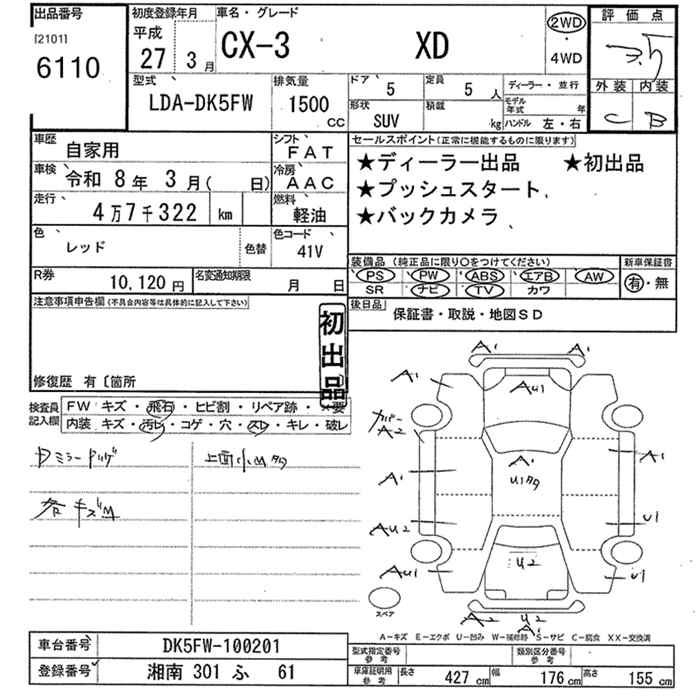 出品番号
[2101]
6110
初度登録年月
平成
27年 3月
車名・グレード
CX-3 XD
2WD
・
4WD
評価点
3.5
外装 内装
C B
型式
LDA-DK5FW
排気量
1500
CC
ドア 5
定員 5人
形状 SUV
積載 kg
ディーラー・並行
モデル年式 年
ハンドル 左・右
車歴 自家用
シフト FAT
車検 令和 8年 3月( 日)
冷房 AAC
走行 4万7千322 km
燃料 軽油
色 レッド 色替
色コード 41V
R券 10,120円
名変通知期限 月 日
セールスポイント(正常に機能するものに限ります)
★ディーラー出品 ★初出品
★プッシュスタート
★バックカメラ
装備品(純正品に限り○をつけてください)
PS PW ABS エアB AW
SR ナビ TV カワ
新車保証書
有・無
後日品 保証書・取説・地図SD
注意事項申告欄(不具合内容等は具体的に記入して下さい)
初出品
修復歴 有〔箇所
検査員記入欄
FW キズ・飛石・ヒビ割・リペア跡・X要
内装 キズ・汚レ・コゲ・穴・スレ・キレ・破レ
上面小
A1 A1
A1 AU1
カバー
A2
A1 A1
A1
AU2 U1
U2
AU1 U1
A2 U2
A1
スペア
A-キズ E-エクボ U-凹み W-補修跡 S-サビ C-腐食 XX-交換済
車台番号 DK5FW-100201
登録番号 湘南 301 ふ 61
型式指定番号
参考
類別区分番号
参考
車庫証明用
参考
長さ 427cm 幅 176cm 高さ 155cm